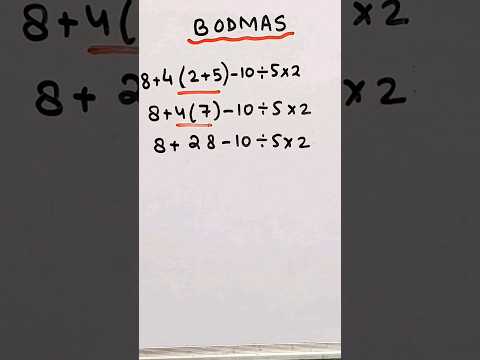 BODMAS
8+4(2+5)-10÷5×2
8+4(7)-10÷5×2
8+28-10÷5×2
8+4(
×2
8+2
×2